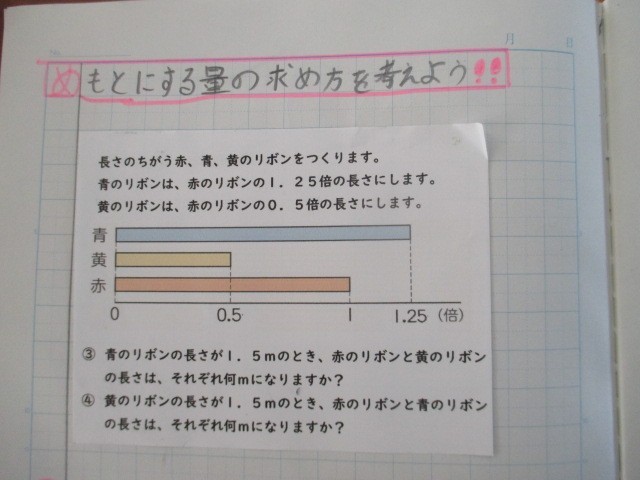 月 日
め もとにする量の求め方を考えよう!!
長さのちがう赤、青、黄のリボンをつくります。
青のリボンは、赤のリボンの1.25倍の長さにします。
黄のリボンは、赤のリボンの0.5倍の長さにします。
青
黄
赤
0 0.5 1 1.25 (倍)
③ 青のリボンの長さが1.5mのとき、赤のリボンと黄のリボン
の長さは、それぞれ何mになりますか?
④ 黄のリボンの長さが1.5mのとき、赤のリボンと青のリボン
の長さは、それぞれ何mになりますか?